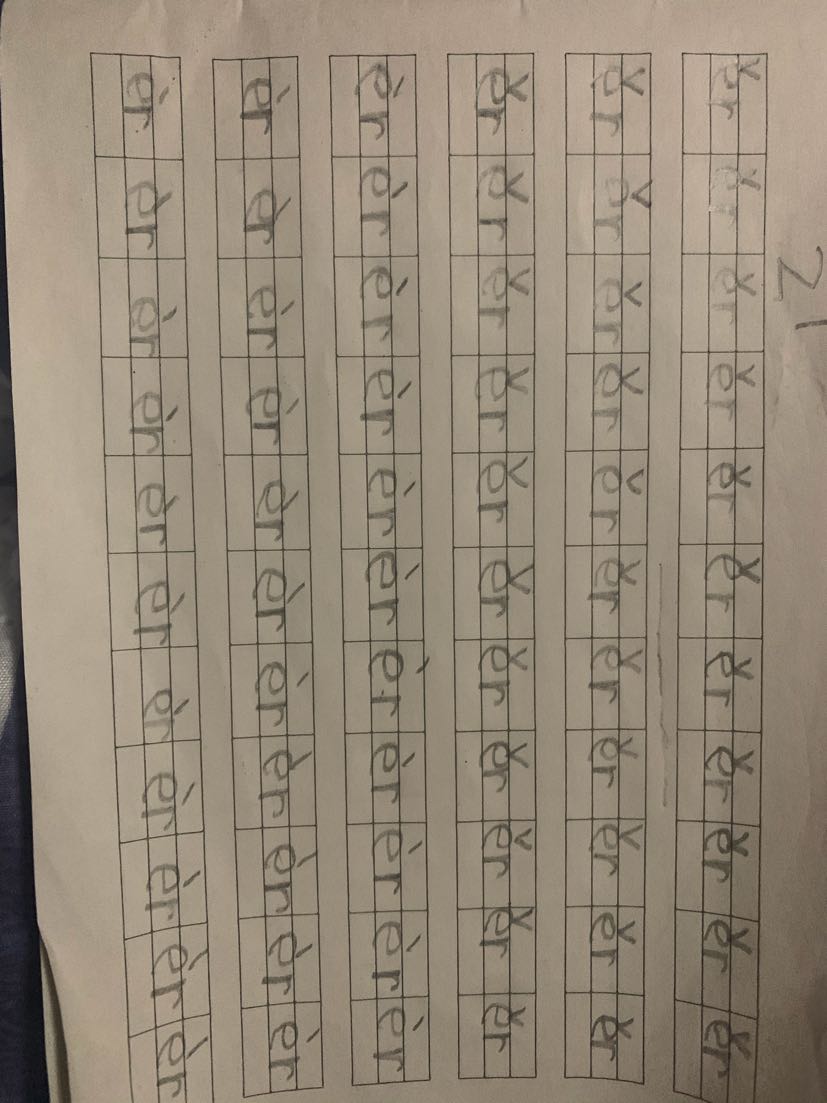 21
ěr ěr ěr ěr ěr ěr ěr ěr ěr ěr ěr
ěr ěr ěr ěr ěr ěr ěr ěr ěr ěr ěr
ěr ěr ěr ěr ěr ěr ěr ěr ěr ěr ěr
èr èr èr èr èr èr èr èr èr èr èr
èr èr èr èr èr èr èr èr èr èr èr
èr èr èr èr èr èr èr èr èr èr èr